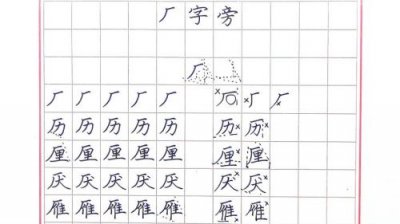 厂字旁
厂
厂 厂 厂 厂 厂 厂 厂 厂
历 历 历 历 历 历 历
厘 厘 厘 厘 厘 厘 厘
厌 厌 厌 厌 厌 厌 厌
雁 雁 雁 雁 雁 雁 雁